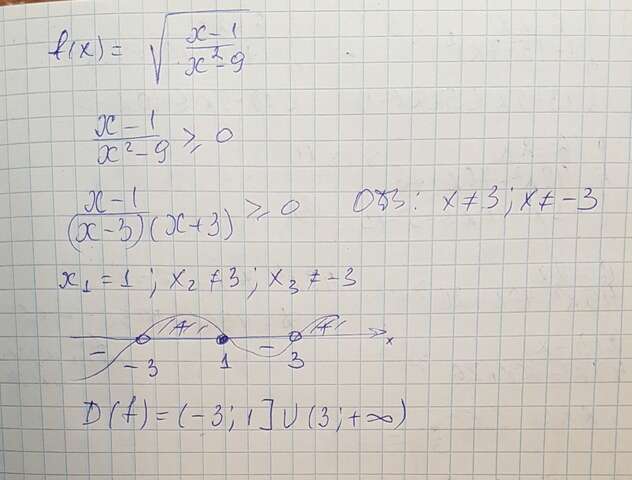 f(x) = √((x-1)/(x²-9))
(x-1)/(x²-9) ≥ 0
(x-1)/((x-3)(x+3)) ≥ 0 ОДЗ: x≠3; x≠-3
x₁=1; x₂≠3; x₃≠-3
- + - + x
-3 1 3
D(f)=(-3;1]∪(3;+∞)